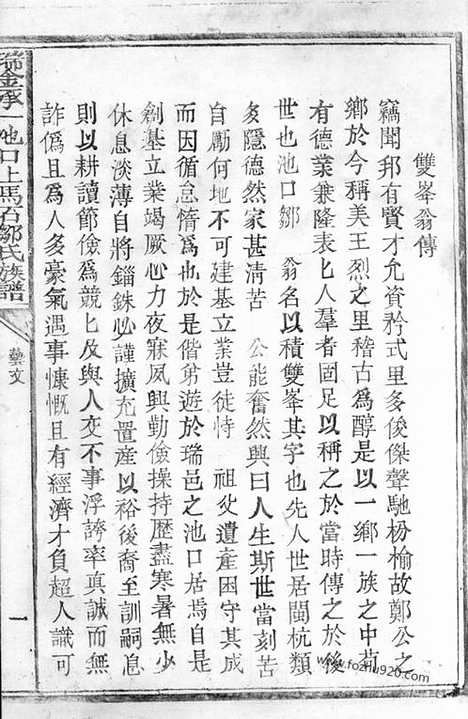 雙峯翁傳
竊聞邦有賢才允資矜式里多俊傑聲馳枌榆故鄭公之
鄉於今稱美王烈之里稽古為醇是以一鄉一族之中苟
有德業兼隆表匕人羣者固足以稱之於當時傳之於後
世也池口鄒 翁名以積雙峯其字也先人世居閩杭類
多隱德然家甚清苦 公能奮然興曰人生斯世當刻苦
自勵何地不可建基立業豈徒恃 祖父遺產困守其成
而因循怠惰為也於是偕弟遊於瑞邑之池口居焉自是
創基立業竭厥心力夜寐夙興勤儉操持歷盡寒暑無少
休息淡薄自將錙銖必謹擴充置產以裕後裔至訓嗣息
則以耕讀節儉為競匕及與人交不事浮誇率真誠而無
詐僞且為人多豪氣遇事慷慨且有經濟才負超人識可
瑞金承一池口上馬石鄒氏族譜
藝文
一
www.fozhu920.com